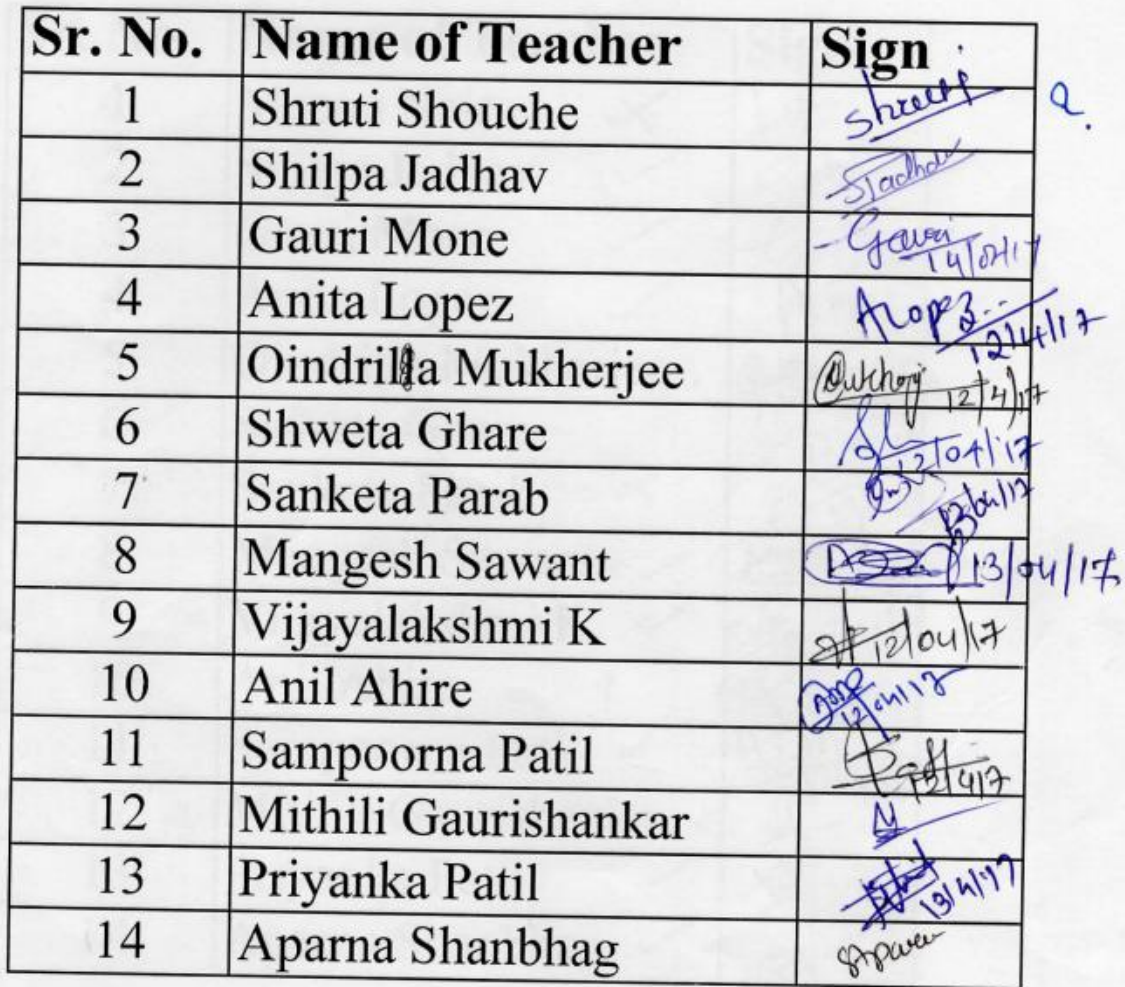 Sr. No. Name of Teacher Sign
1 Shruti Shouche
2 Shilpa Jadhav SJadhav
3 Gauri Mone Gauri 14/04/17
4 Anita Lopez ALopez 12/4/17
5 Oindrilla Mukherjee 12/4/17
6 Shweta Ghare 12/04/17
7 Sanketa Parab
8 Mangesh Sawant 13/04/17
9 Vijayalakshmi K 12/04/17
10 Anil Ahire 12/04/17
11 Sampoorna Patil
12 Mithili Gaurishankar
13 Priyanka Patil 13/4/17
14 Aparna Shanbhag